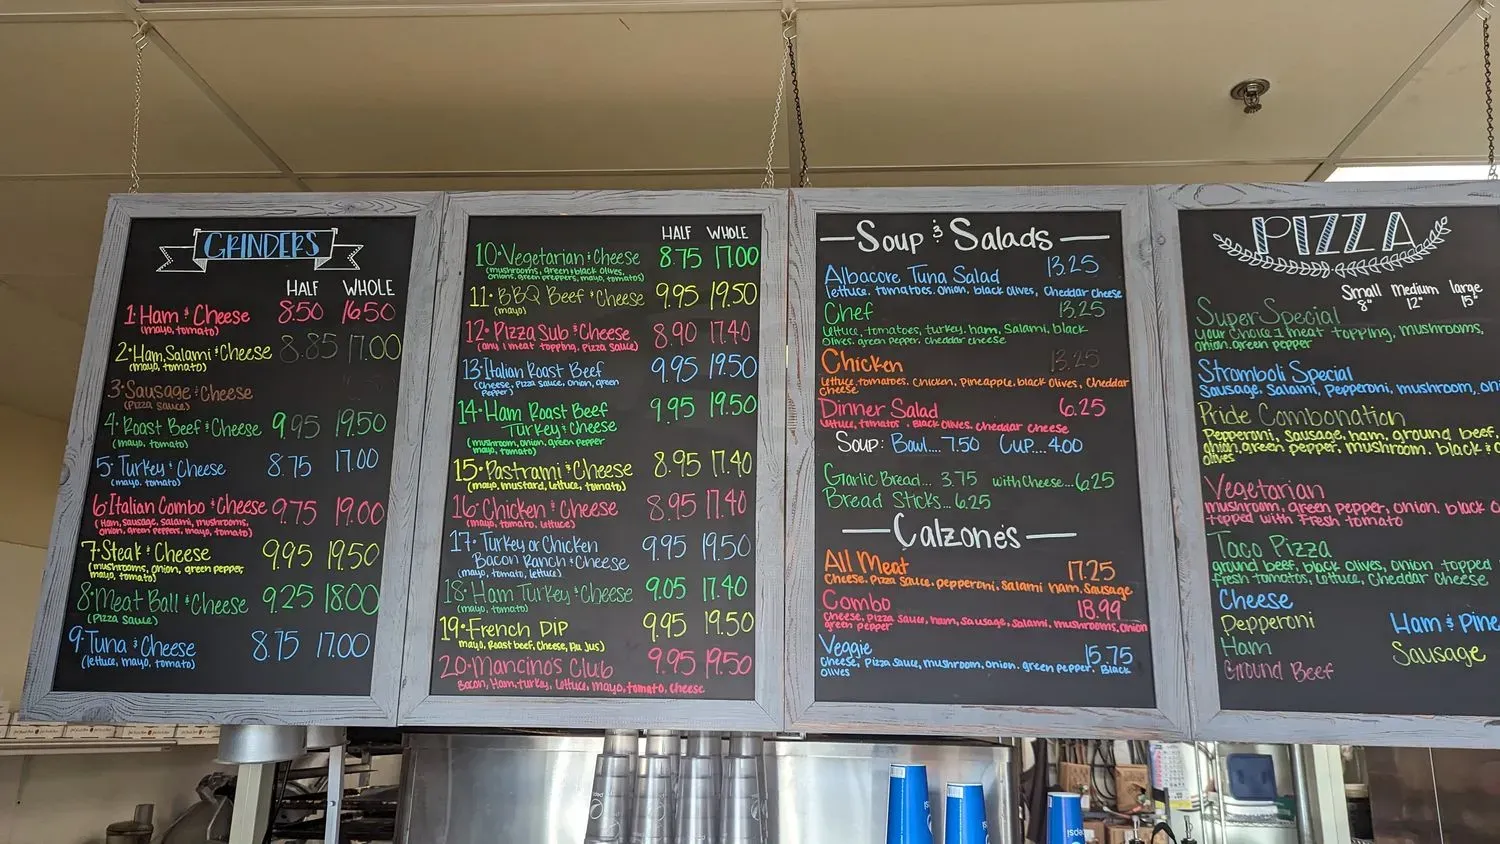 GRINDERS
HALF WHOLE
1. Ham & Cheese 8.50 16.50
(mayo, tomato)
2. Ham, Salami & Cheese 8.85 17.00
(mayo, tomato)
3. Sausage & Cheese
(Pizza sauce)
4. Roast Beef & Cheese 9.95 19.50
(mayo, tomato)
5. Turkey & Cheese 8.75 17.00
(mayo, tomato)
6. Italian Combo & Cheese 9.75 19.00
(Ham, sausage, salami, mushrooms,
onion, green peppers, mayo, tomato)
7. Steak & Cheese 9.95 19.50
(mushrooms, onion, green pepper,
mayo, tomato)
8. Meat Ball & Cheese 9.25 18.00
(Pizza sauce)
9. Tuna & Cheese 8.75 17.00
(lettuce, mayo, tomato)
HALF WHOLE
10. Vegetarian & Cheese 8.75 17.00
(mushrooms, green & black olives,
onions, green preppers, mayo, tomato)
11. BBQ Beef & Cheese 9.95 19.50
(mayo)
12. Pizza Sub & Cheese 8.90 17.40
(any 1 meat topping, pizza sauce)
13. Italian Roast Beef 9.95 19.50
(Cheese, Pizza sauce, onion, green
pepper)
14. Ham Roast Beef 9.95 19.50
Turkey & Cheese
(mushroom, onion, green pepper
mayo, tomato)
15. Pastrami & Cheese 8.95 17.40
(mayo, mustard, lettuce, tomato)
16. Chicken & Cheese 8.95 17.40
(mayo, tomato, lettuce)
17. Turkey or Chicken 9.95 19.50
Bacon Ranch & Cheese
(mayo, tomato, lettuce)
18. Ham Turkey & Cheese 9.05 17.40
(mayo, tomato)
19. French DIP 9.95 19.50
mayo, Roast beef, Cheese, Au Jus)
20. Mancinos Club 9.95 19.50
Bacon, Ham, turkey, Lettuce, mayo, tomato, cheese
Soup & Salads
Albacore Tuna Salad 13.25
lettuce, tomatoes, onion, black olives, Cheddar cheese
Chef 13.25
lettuce, tomatoes, turkey, ham, Salami, black
olives, green pepper, cheddar cheese
Chicken 13.25
lettuce, tomatoes, chicken, Pineapple, black olives, Cheddar
cheese
Dinner Salad 6.25
lettuce, tomatos, Black olives, cheddar cheese
Soup: Bowl....7.50 Cup....4.00
Garlic Bread... 3.75 with Cheese...6.25
Bread Sticks... 6.25
Calzone's
All Meat 17.25
Cheese, Pizza Sauce, pepperoni, Salami ham, Sausage
Combo 18.99
Cheese, Pizza sauce, ham, sausage, salami, mushrooms, onion
green pepper
Veggie 15.75
Cheese, Pizza sauce, mushroom, onion, green pepper, Black
olives
PIZZA
Small Medium large
8" 12" 15"
Super Special
your choice 1 meat topping, mushrooms,
onion, green pepper
Stromboli Special
Sausage, Salami, Pepperoni, mushroom, oni
Pride Combonation
Pepperoni, sausage, ham, ground beef,
onion, green pepper, mushroom, black &
olives
Vegetarian
mushroom, green pepper, onion, black o
topped with Fresh tomato
Taco Pizza
ground beef, black olives, onion topped
fresh tomatos, lettuce, Cheddar cheese
Cheese
Pepperoni
Ham
Ground Beef
Ham & Pine
Sausage
pepsi